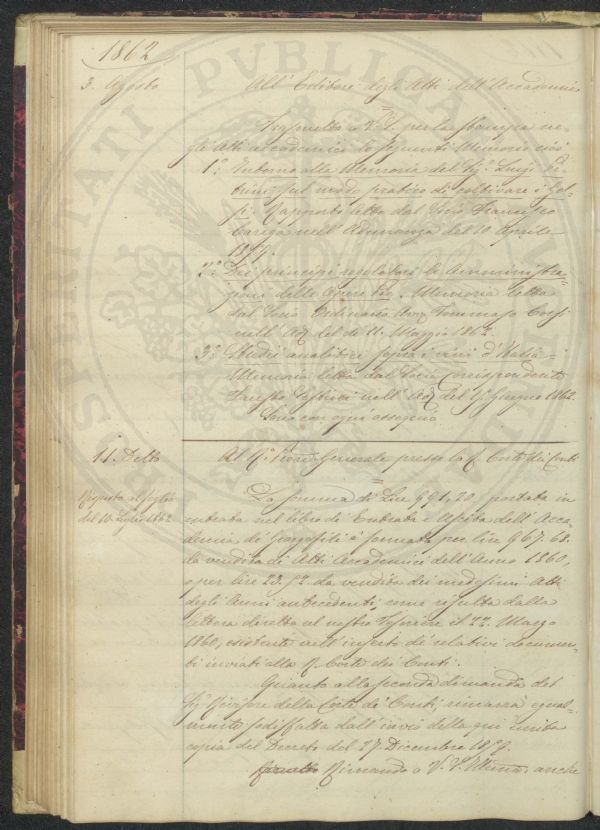 1862
3. Agosto
All'Editore degli Atti dell'Accademia
Trasmetto a V. S. per la stampa ne-
gli Atti accademici le seguenti Memorie cioè
1º. Intorno alla Memoria del Sig. Luigi
sul modo pratico di coltivare i Gel-
si. Rapporto letto dal Socio Francesco
Carega nell'Adunanza del 10 Aprile
2º Dei principi regolatori le Amministra-
zioni delle Opere Pie. Memoria letta
dal Socio Ordinario Avv. Tommaso Corsi
nell'Ad. del dì 11. Maggio 1862.
3º Studii analitici sopra i vini d'Italia -
Memoria letta dal Socio Corrispondente
nell'Ad. del Giugno 1862.
Sono con ogni ossequio
11. Detto
Risposta al foglio
del 10. Luglio 1862
Al Generale presso la R. Corte dei Conti
La somma di Lire 991,20, portata in
entrata nel libro di Entrata e Uscita dell'Acca-
demia dei Georgofili è formata per lire 967.68.
da vendita di Atti Accademici dell'Anno 1860,
e per lire 23,52. da vendita dei medesimi Atti
degli Anni antecedenti, come risulta dalla
lettera diretta al nostro Tesoriere il 22. Marzo
1860, esistente nell'inserto de' relativi documen-
ti inviati alla R. Corte dei Conti.
Quanto alla seconda dimanda del
Sig. Revisore della Corte de' Conti rimarrà egual-
mente sodisfatta dall'invio della qui unita
copia del Decreto del 27. Dicembre
Rimando a V. S. Illma. anche